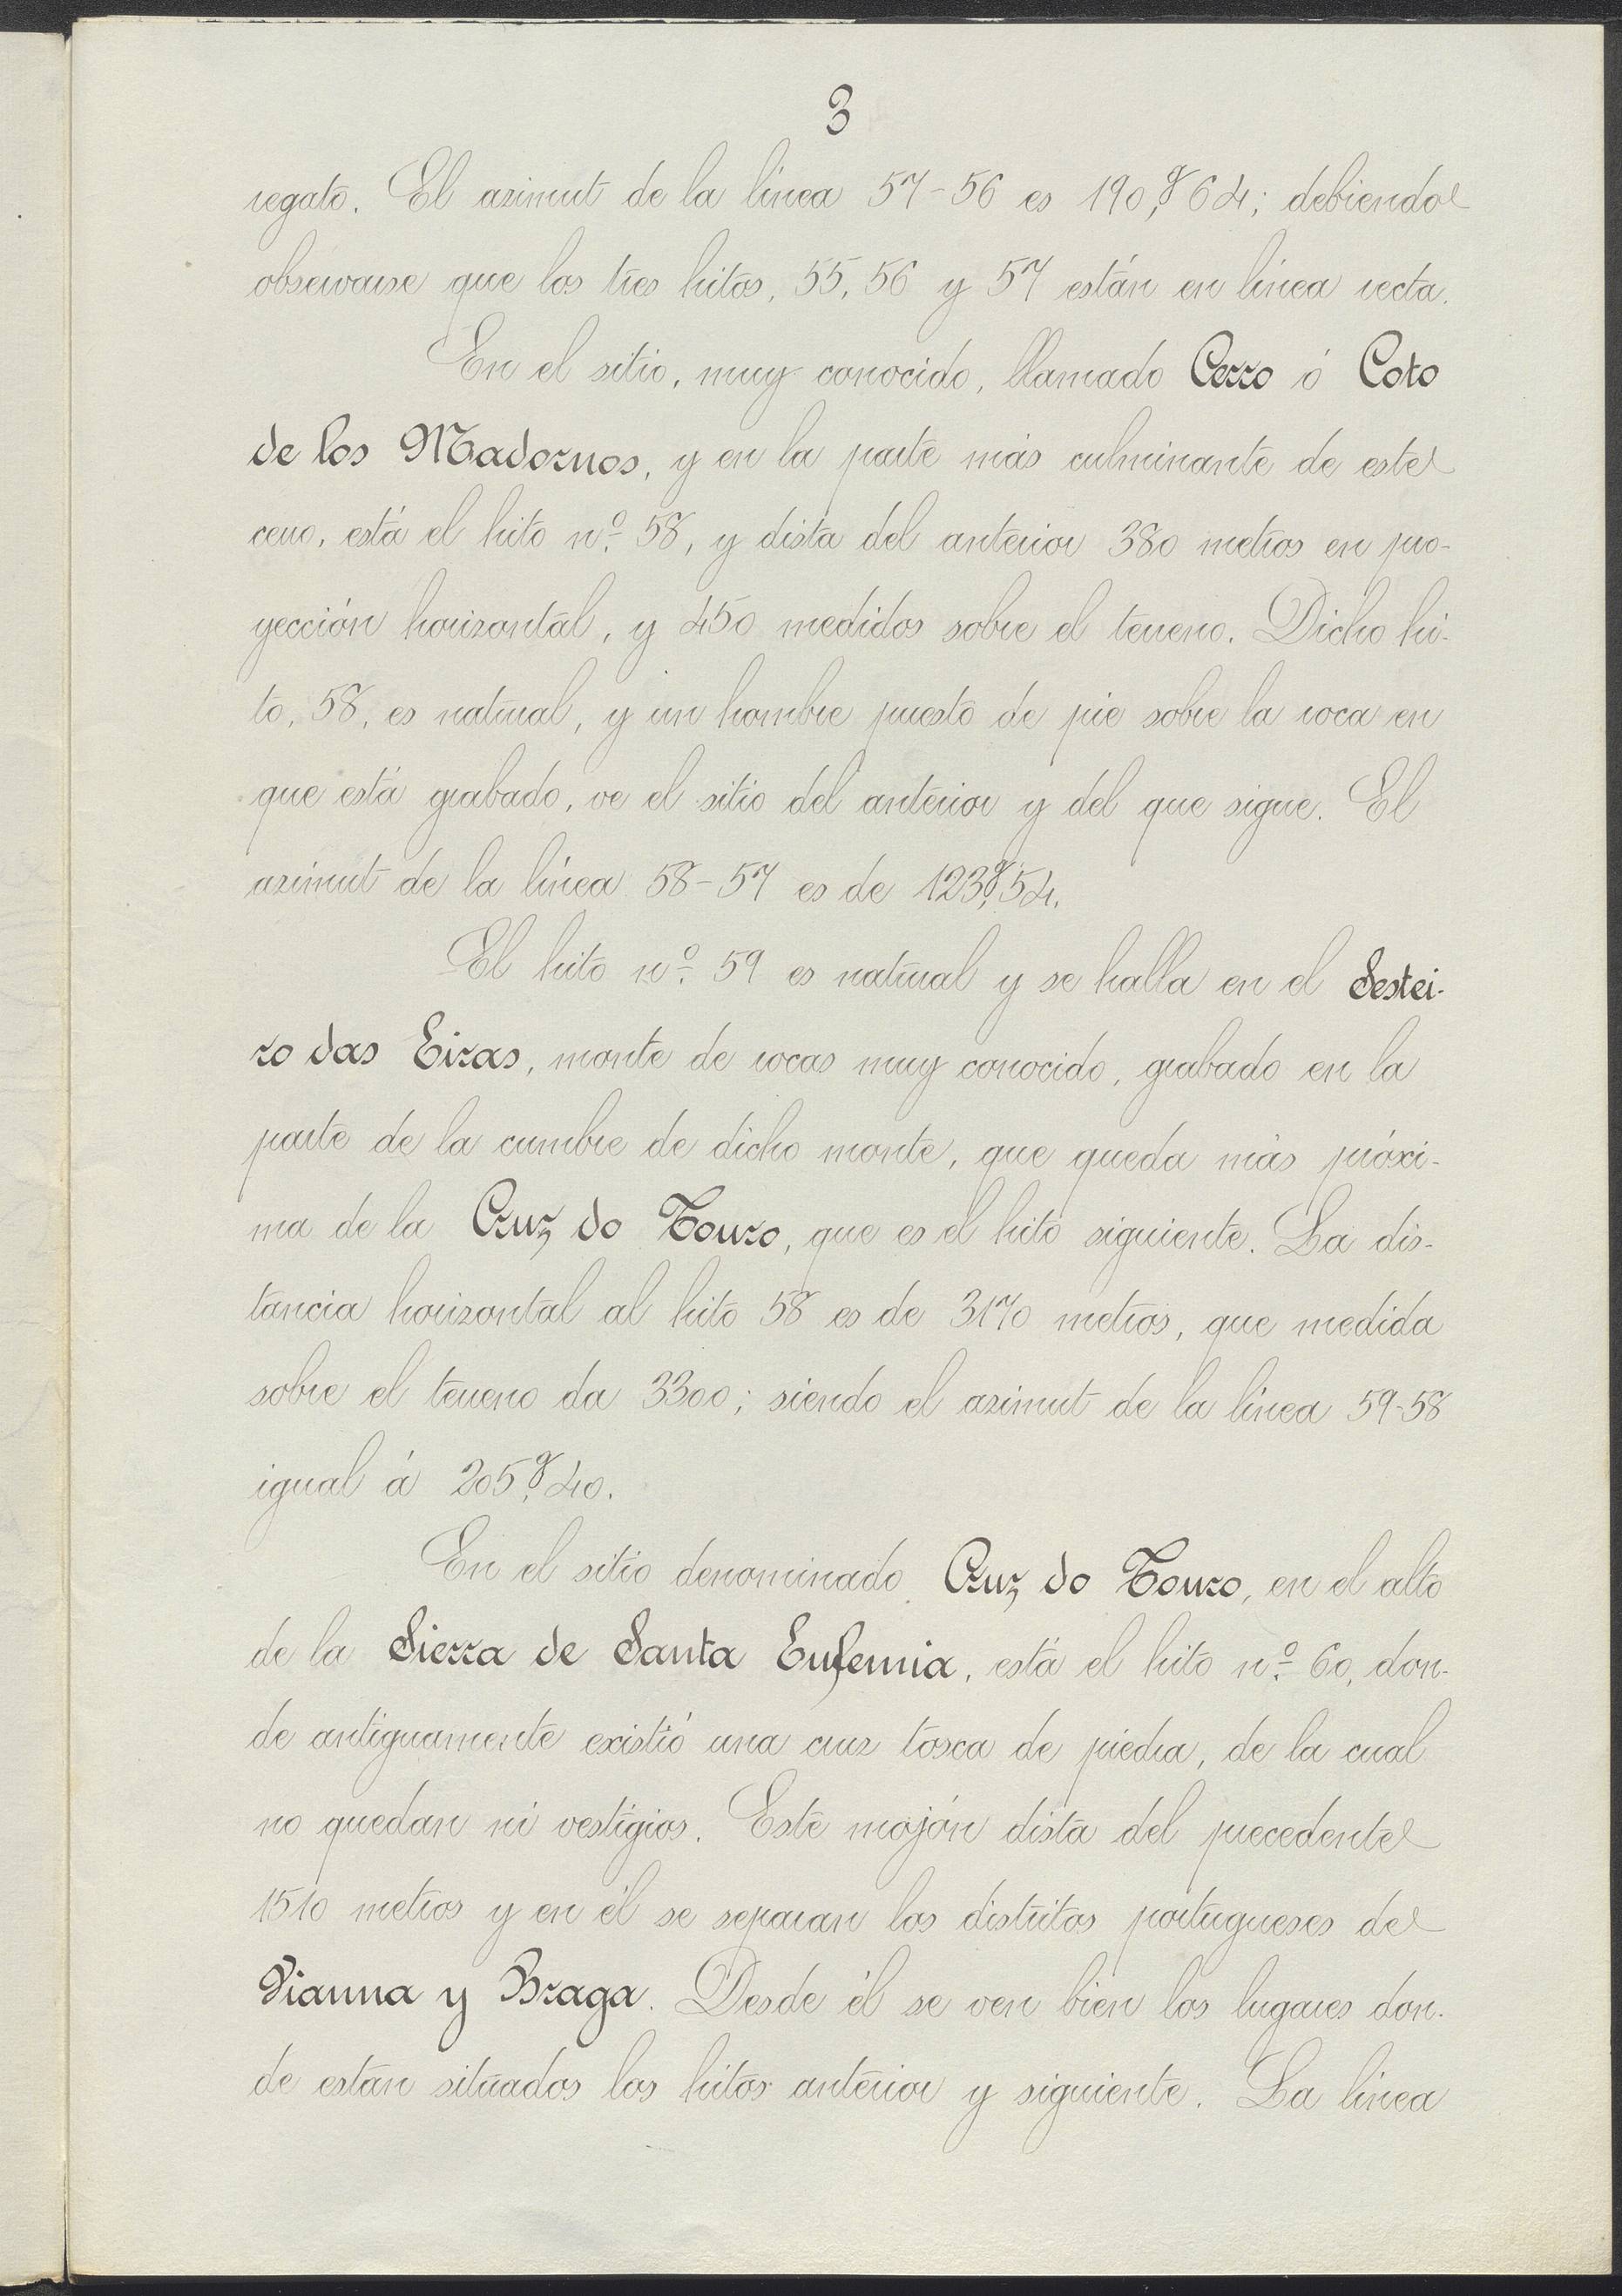 3
regato. El azimut de la línea 57-56 es 190,g64; debiendo
observarse que los tres hitos, 55, 56 y 57 están en línea recta.
En el sitio, muy conocido, llamado Cerro ó Coto
de los Madornos, y en la parte más culminante de este
cerro, está el hito nº 58, y dista del anterior 380 metros en pro-
yección horizontal, y 450 medidos sobre el terreno. Dicho hi-
to, 58, es natural, y un hombre puesto de pie sobre la roca en
que está grabado, ve el sitio del anterior y del que sigue. El
azimut de la línea 58-57 es de 123,g54.
El hito nº 59 es natural y se halla en el Sestei-
ro das Eiras, monte de rocas muy conocido, grabado en la
parte de la cumbre de dicho monte, que queda más próxi-
ma de la Cruz do Touro, que es el hito siguiente. La dis-
tancia horizontal al hito 58 es de 3170 metros, que medida
sobre el terreno da 3300; siendo el azimut de la línea 59-58
igual á 205,g40.
En el sitio denominado Cruz do Touro, en el alto
de la Sierra de Santa Eufemia, está el hito nº 60, don-
de antiguamente existió una cruz tosca de piedra, de la cual
no quedan ni vestigios. Este mojón dista del precedente
1510 metros y en él se separan los distritos portugueses de
Vianna y Braga. Desde él se ven bien los lugares don-
de están situados los hitos anterior y siguiente. La línea